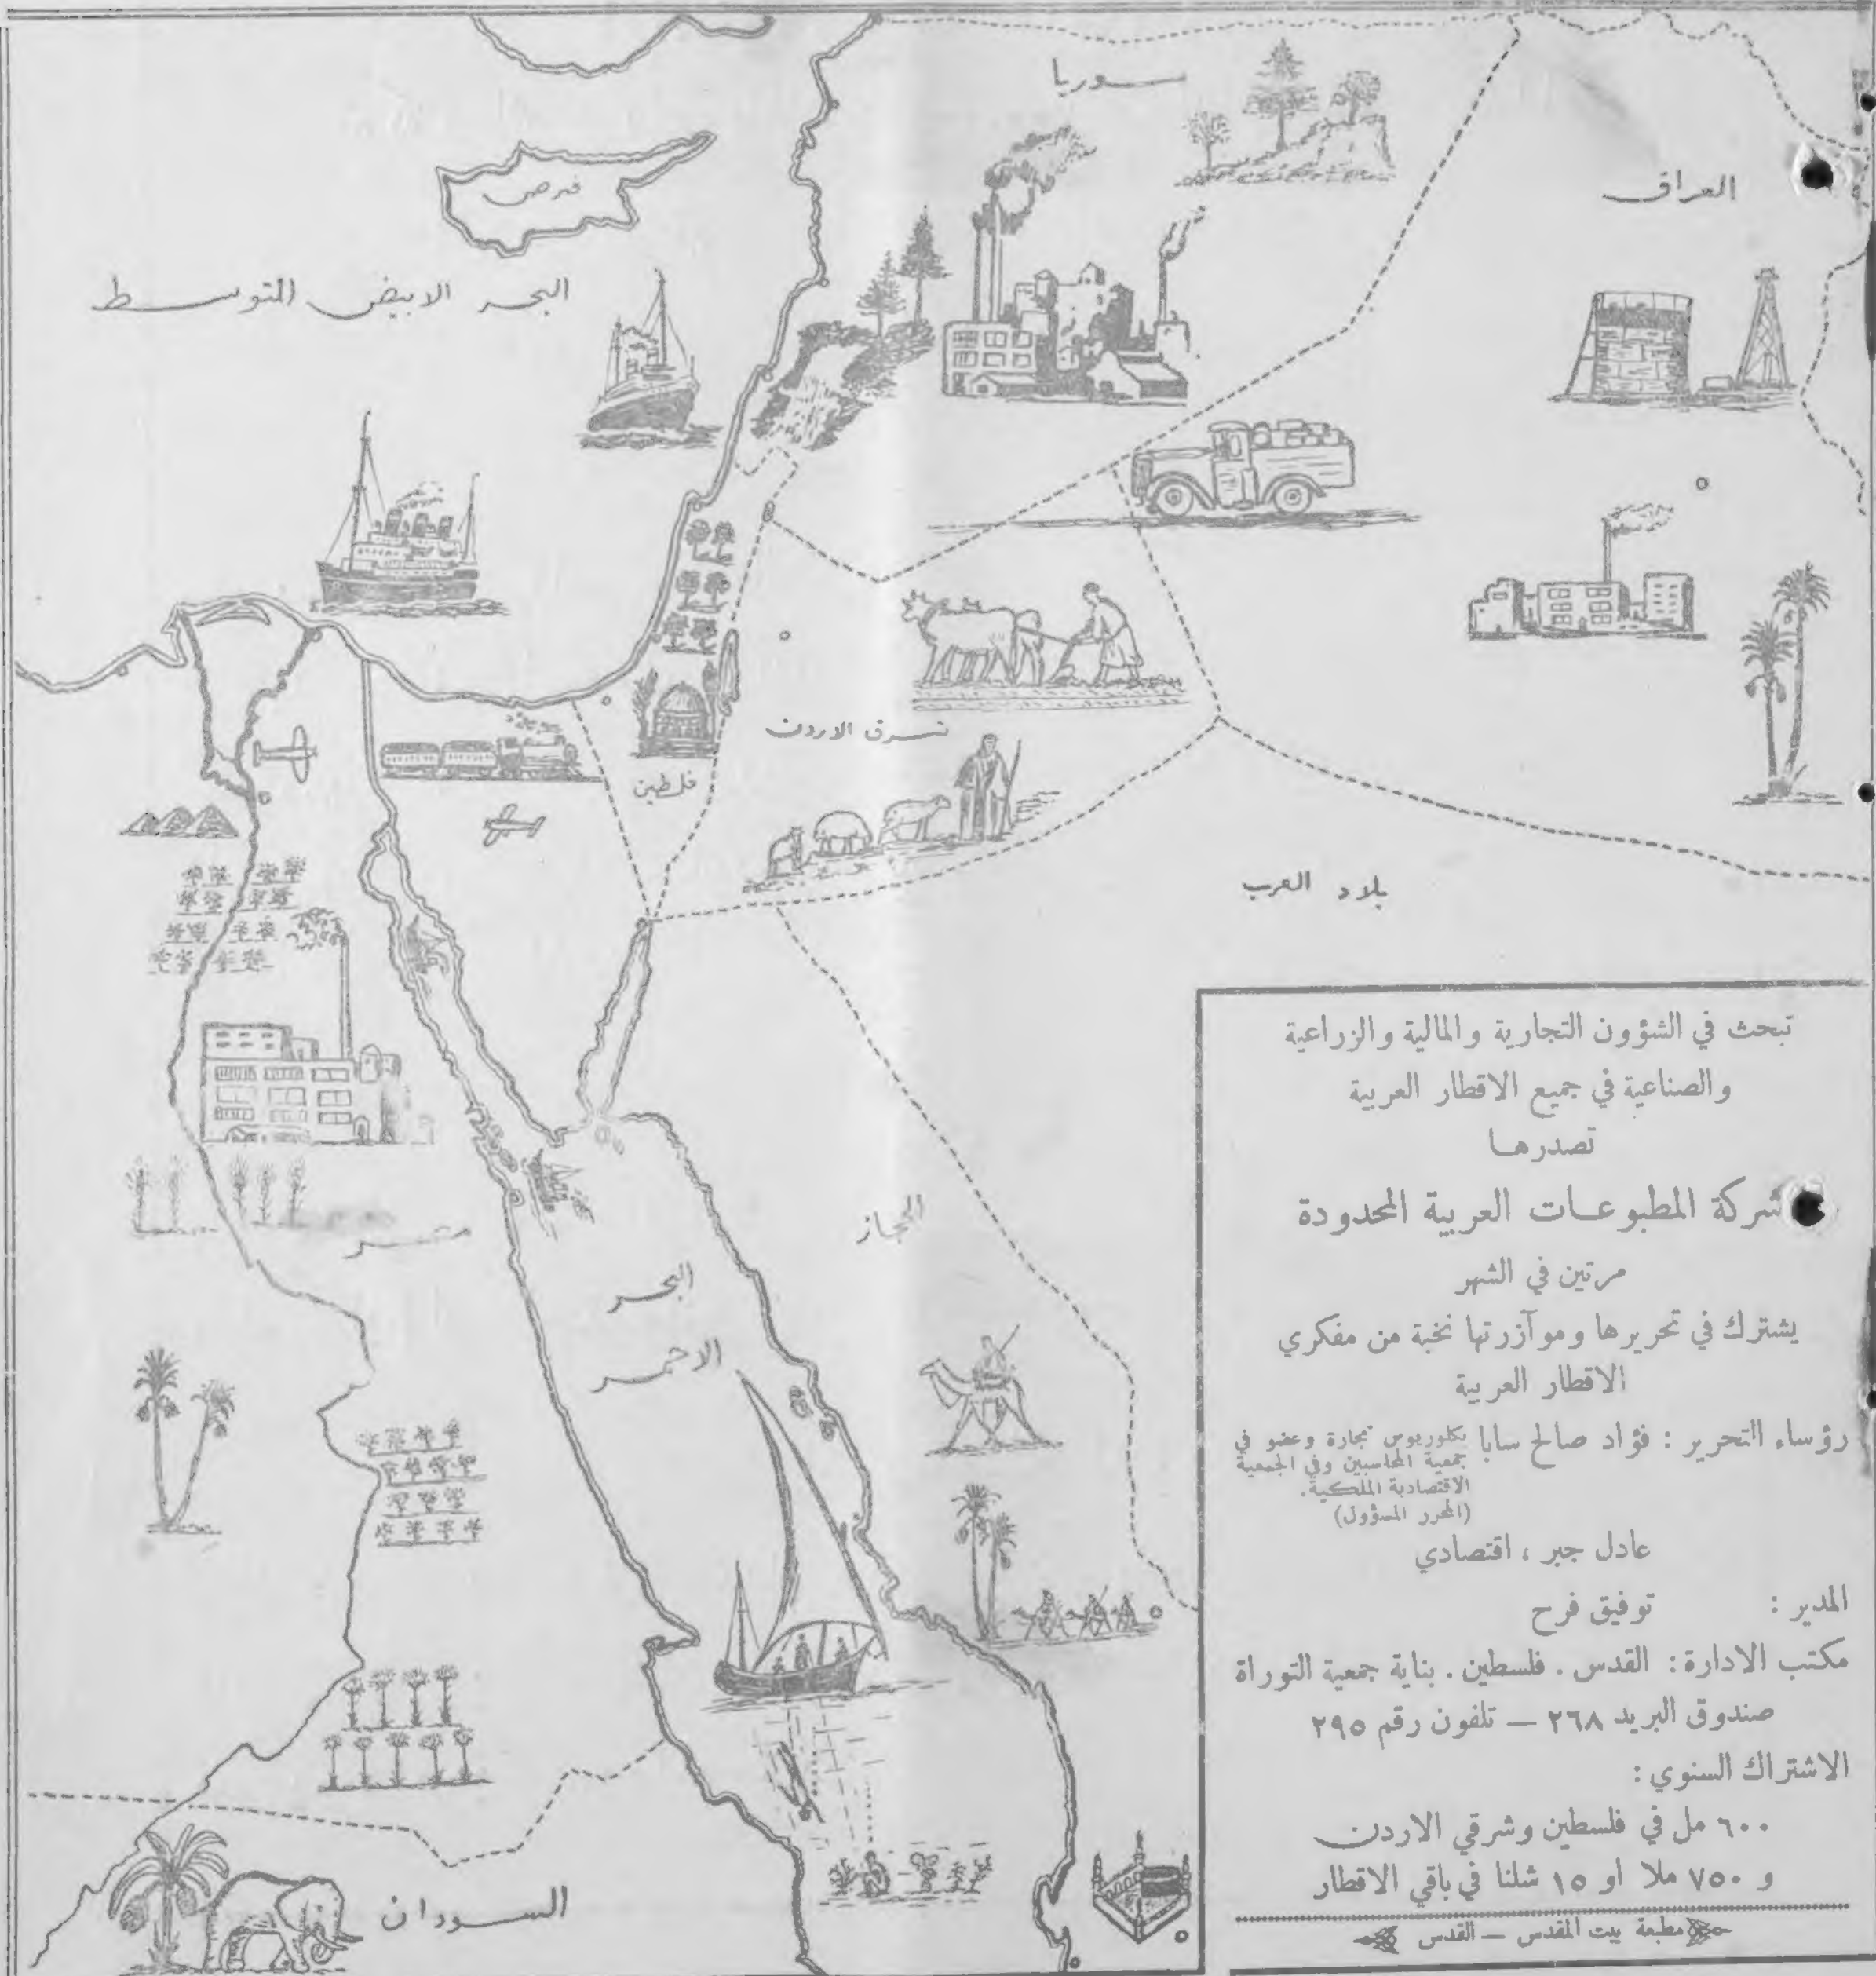 سوريا
العراق
قبرص
البحر الابيض المتوسط
شرق الاردن
فلطين
بلاد العرب
مصر
الحجاز
البحر
الاحمر
السودان
تبحث في الشؤون التجارية والمالية والزراعية
والصناعية في جميع الاقطار العربية
تصدرها
شركة المطبوعات العربية المحدودة
مرتين في الشهر
يشترك في تحريرها وموآزرتها نخبة من مفكري
الاقطار العربية
رؤساء التحرير : فؤاد صالح سابا بكلوريوس تجارة وعضو في
جمعية المحاسبين وفي الجمعية
الاقتصادية الملكية.
(المحرر المسؤول)
عادل جبر ، اقتصادي
المدير : توفيق فرح
مكتب الادارة : القدس . فلسطين . بناية جمعية التوراة
صندوق البريد ٢٦٨ — تلفون رقم ٢٩٥
الاشتراك السنوي :
٦٠٠ مل في فلسطين وشرقي الاردن
و ٧٥٠ ملا او ١٥ شلنا في باقي الاقطار
مطبعة بيت المقدس — القدس